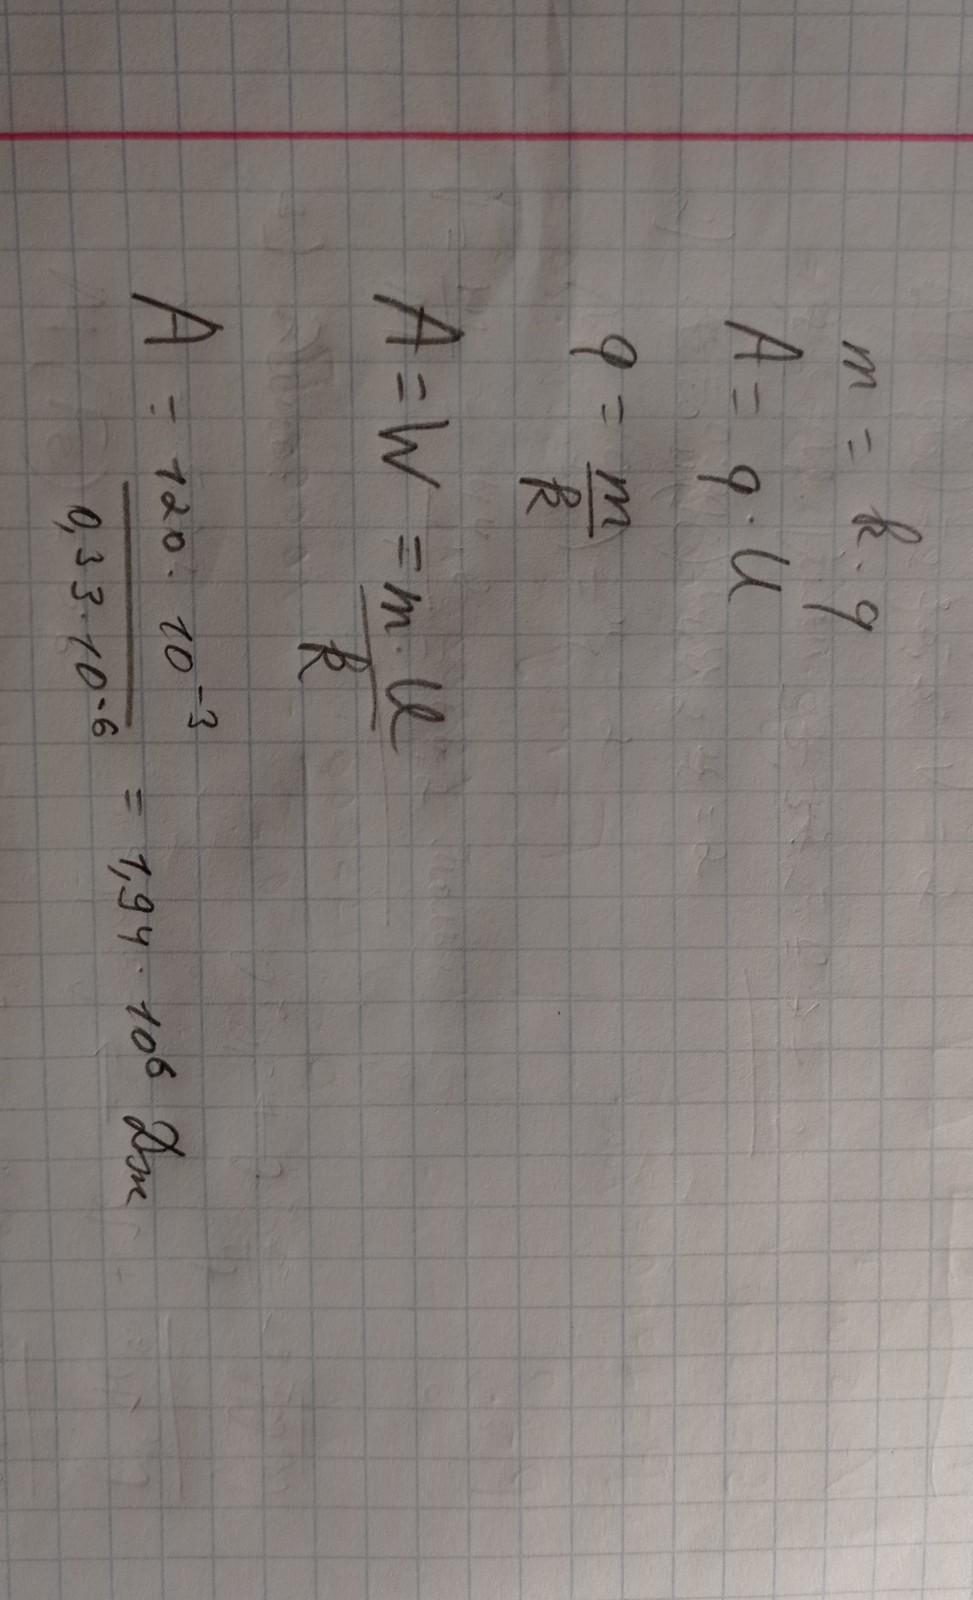 m = k · q
A = q · U
q = m/k
A = W = m · U/k
A = 120 · 10⁻³/0,33 · 10⁻⁶ = 1,94 · 10⁶ Дж